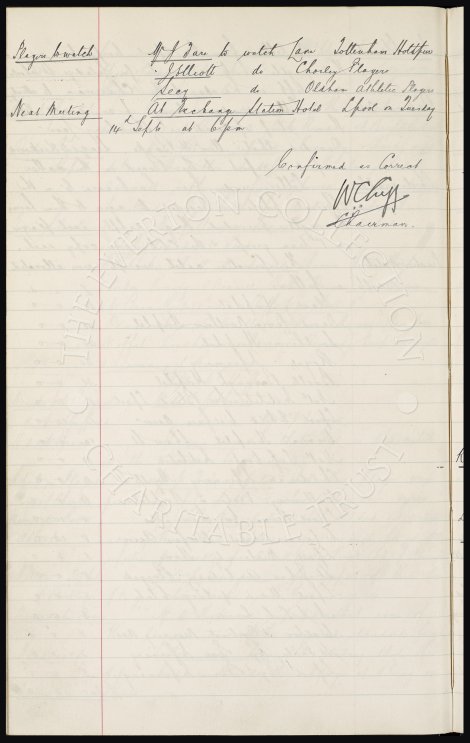 Players to watch Mr J Dare to watch Lane Tottenham Hotspur
" do Chorley Players
Secy do Oldham Athletic Players
Next Meeting At Exchange Station Hotel Lpool on Tuesday
14th Sept at 6 pm
Confirmed as Correct
W C Cuff
Chairman.
THE EVERTON COLLECTION
CHARITABLE TRUST